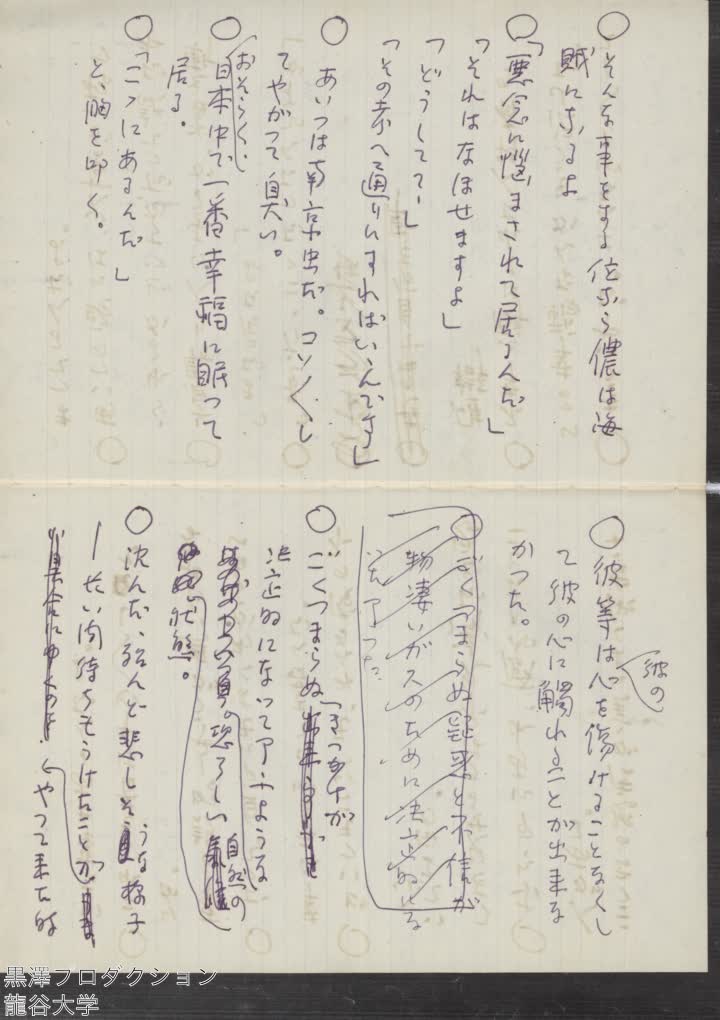 ○そんな事をする位なら儂は海
賊になるよ
○「悪念に悩まされて居るんだ」
「それはなほせますよ」
「どうしてて」
「その赤へ通りにすればいゝんです」
○あいつは南京虫だ。コソ〳〵し
てやがつて臭い。
○(おそらく)日本中で一番幸福に眠つて
居る。
○「こゝにあるんだ」
と、胸を叩く。
○彼等は彼の心を傷けることなくし
て彼の心に觸れることが出来な
かつた。
○ごくつまらぬ疑惑と不信が
物凄いガスのために決定的にな
つた
○ごくつまらぬきつかけが
決定的になつて了ふような
恐ろしい自然の
状態。
○沈んだ、殆んど悲しそうな様子
长い間待ちもうけたことが
やつて来た的
黒澤プロダクション
龍谷大学